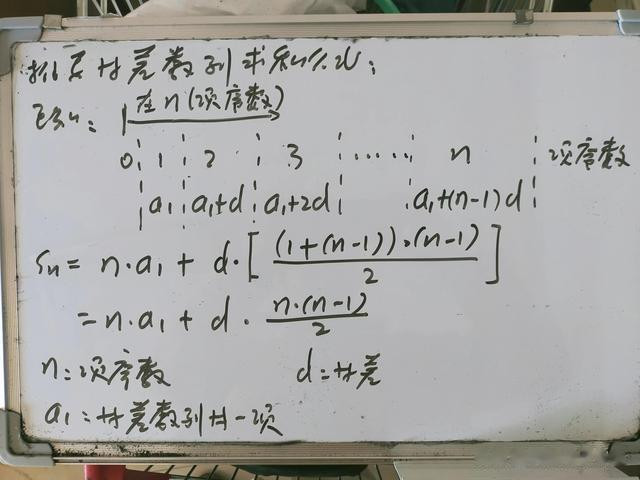 推导等差数列求和公式:
已知: 在n(项序数)
0 1 2 3 …… n 项序数
a₁ a₁+d a₁+2d a₁+(n-1)d
Sn = n·a₁ + d·[((1+(n-1))·(n-1))/2]
= n·a₁ + d·(n·(n-1))/2
n:项序数 d:公差
a₁:等差数列廿一项